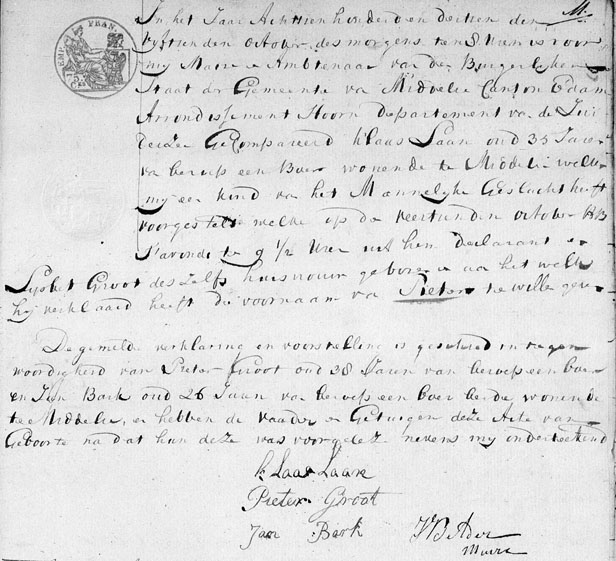 M.
EMP. FRAN.
In het Jaar Achttien honderd en dertien den
vyftienden october des morgens ten 8 Uuren is voor
my Maire Ambtenaar van den Burgerlyken
Staat der Gemeente van Middelie Canton Edam
Arrondissement Hoorn departement van de Zui
derzee Gecompareerd Klaas Laan oud 35 Jaren
van beroep een Boer wonende te Middelie welke
my een kind van het Mannelyke Geslacht heeft
voorgesteld welke op de veertienden october 1813
s'avonds te 9 1/2 Uur uit hem declarant en
Lysbet Groot deszelfs huisvrouw geboren is aan het welke
hy verklaard heeft de voornaam van Pieter te willen geven
De gemelde verklaring en voorstelling is geschied in tegen
woordigheid van Pieter Groot oud 38 Jaren van beroep een boer
en Jan Bark oud 26 Jaren van beroep een boer beide wonende
te Middelie, en hebben de vader en Getuigen deze Acte van
Geboorte na dat hun deze was voorgelezen nevens my onderteekend
Klaas Laan
Pieter Groot
Jan Bark
Maire